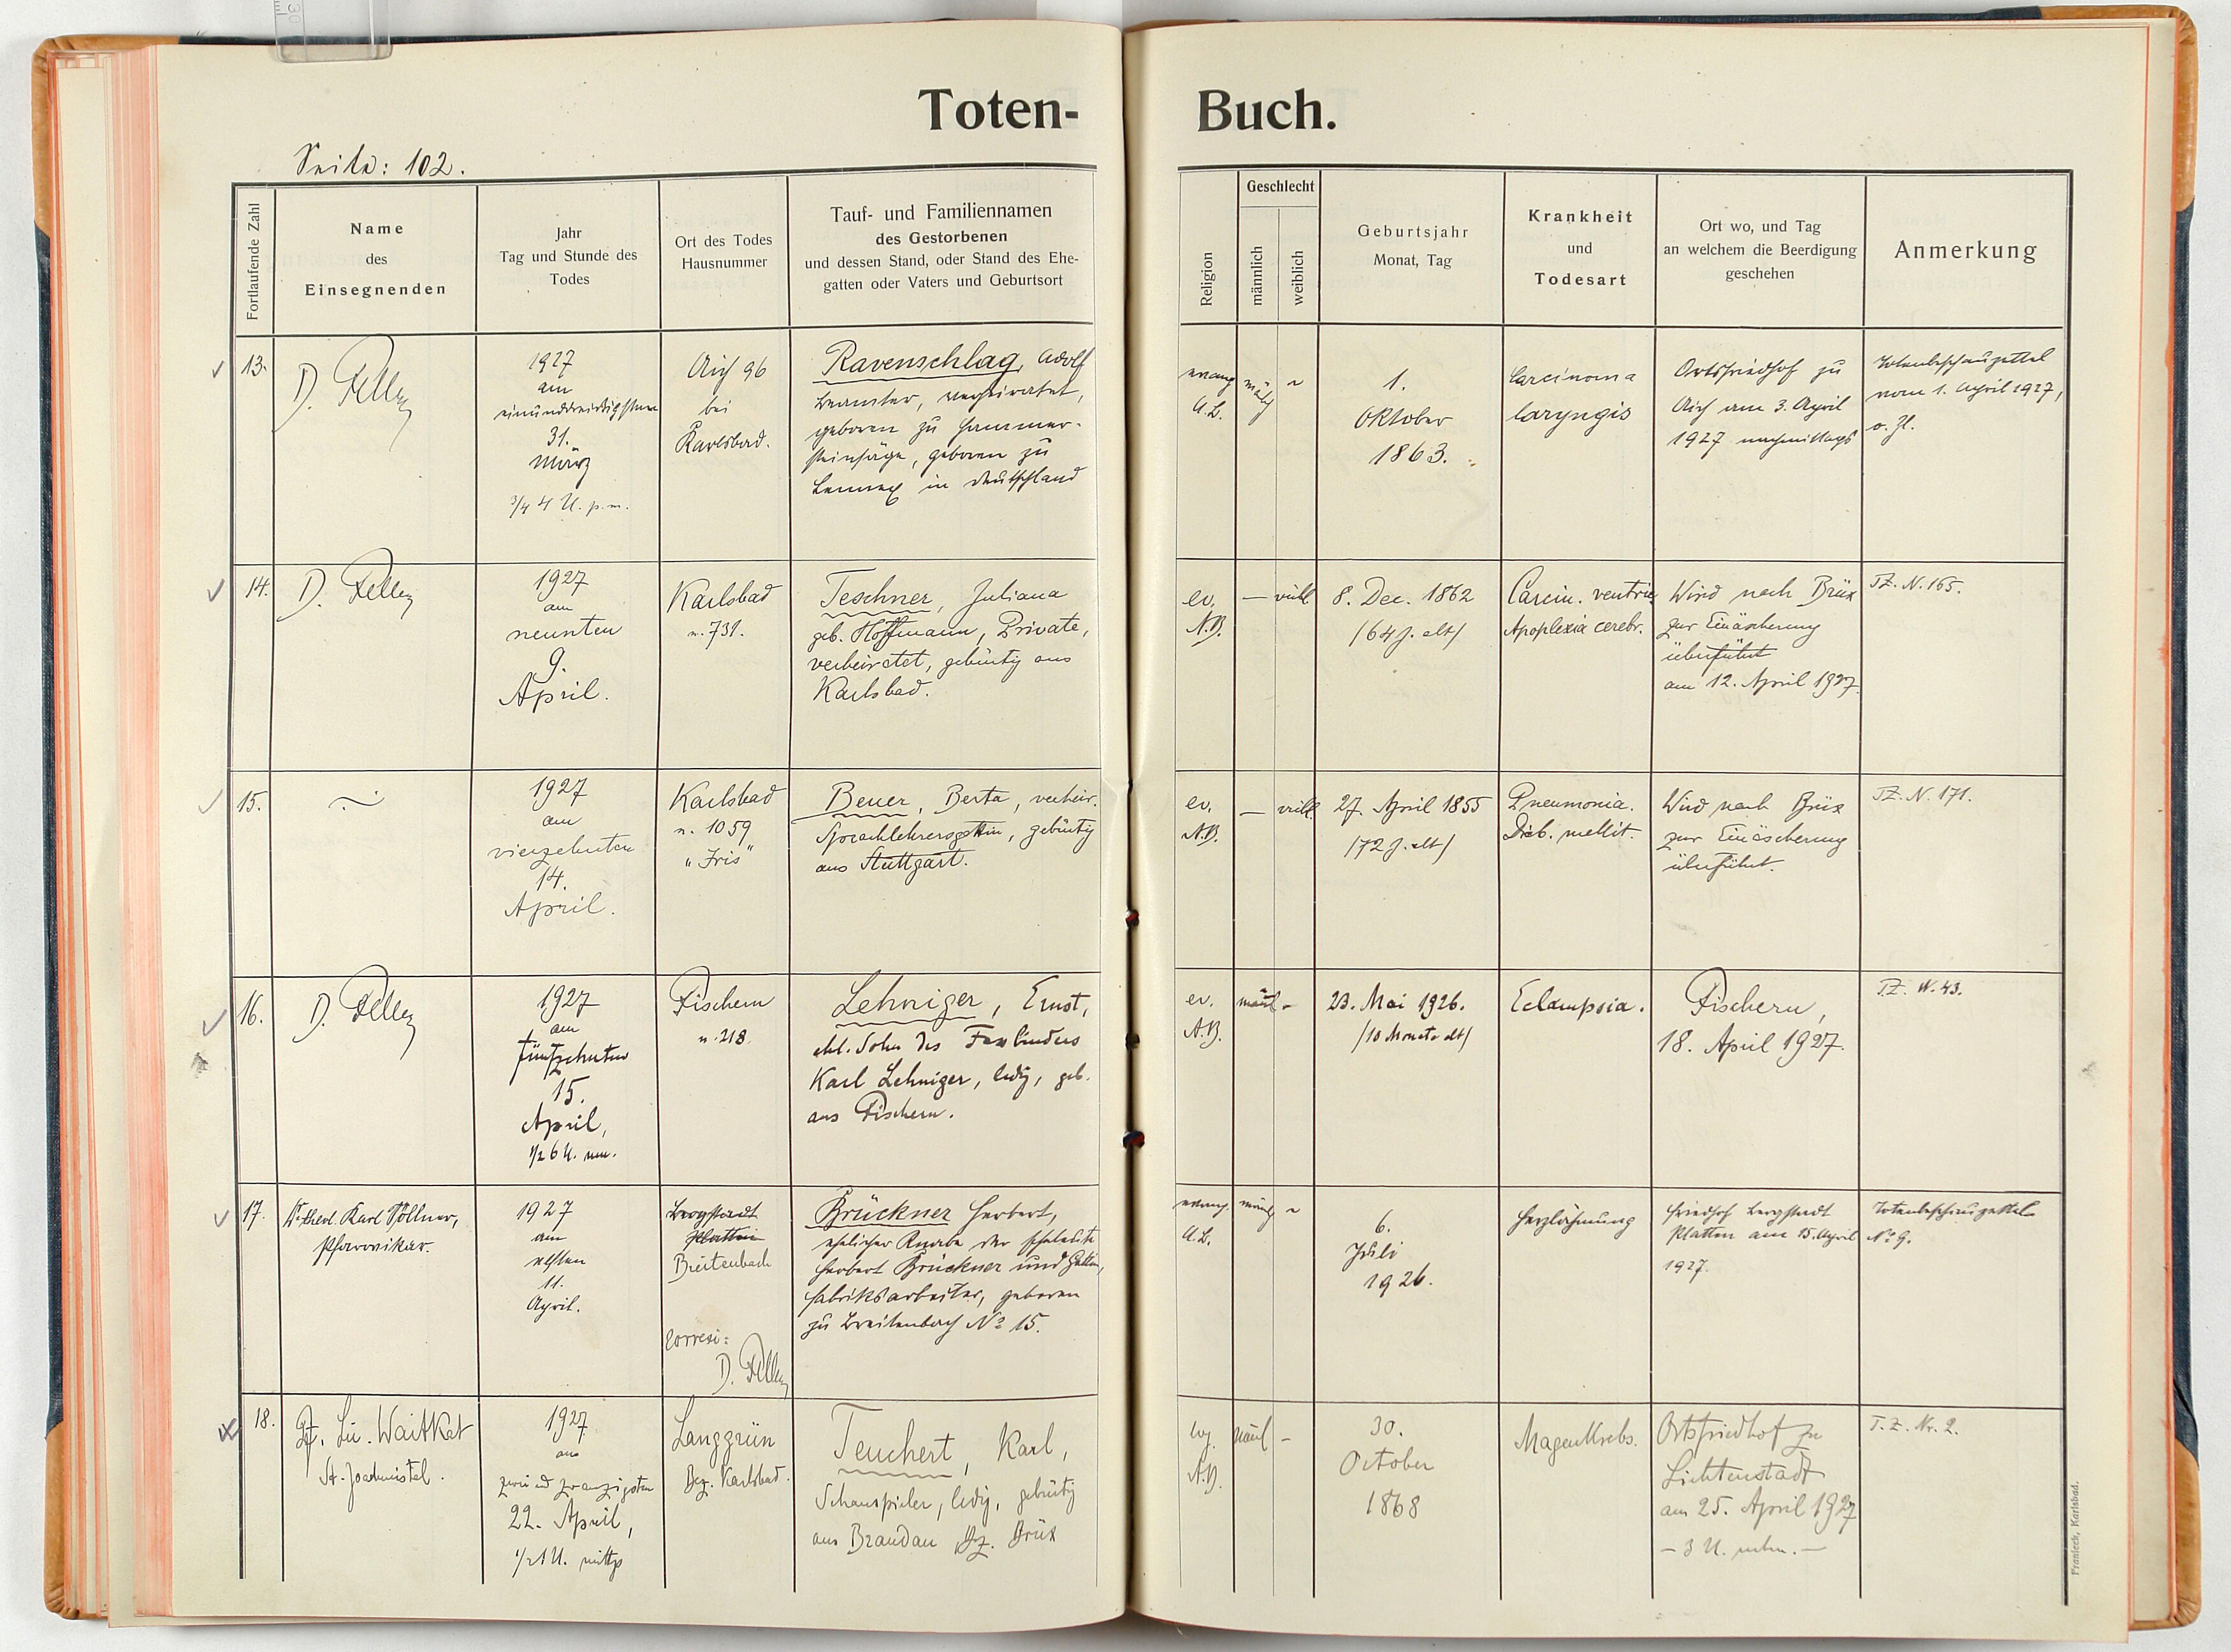 Toten-
Buch.
Seite: 102.
Fortlaufende Zahl
Name
des
Einsegnenden
Jahr
Tag und Stunde des
Todes
Ort des Todes
Hausnummer
Tauf- und Familiennamen
des Gestorbenen
und dessen Stand, oder Stand des Ehe-
gatten oder Vaters und Geburtsort
Religion
Geschlecht
männlich
weiblich
Geburtsjahr
Monat, Tag
Krankheit
und
Todesart
Ort wo, und Tag
an welchem die Beerdigung
geschehen
Anmerkung
13.
D.
1927
am
einunddreißigsten
31.
März
3/4 4 U. p. m.
Aich 96
bei
Karlsbad.
Ravenschlag, Adolf
Beamter, verheiratet,
geboren zu
geboren zu
Lennep in Deutschland
evang.
A.B.
männl.
1.
Oktober
1863.
Carcinoma
laryngis
Ortsfriedhof zu
Aich am 3. April
1927 nachmittags
Totenbeschauzettel
vom 1. April 1927,
o. Zl.
14.
D.
1927
am
neunten
9.
April.
Karlsbad
n. 731.
Teschner, Juliana
geb. Hoffmann, Private,
verheiratet, gebürtig aus
Karlsbad.
ev.
A.B.
—
weibl.
8. Dec. 1862
/64 J. alt/
Carcin. ventric.
Apoplexia cerebr.
Wird nach Brüx
zur Einäscherung
überführt
am 12. April 1927.
TZ. N. 165.
15.
1927
am
vierzehnten
14.
April.
Karlsbad
n. 1059
"Iris"
Beuer, Berta, verheir.
Sprachlehrersgattin, gebürtig
aus Stuttgart.
ev.
A.B.
—
weibl.
27. April 1855
/72 J. alt/
Pneumonia.
Diab. mellit.
Wird nach Brüx
zur Einäscherung
überführt.
TZ. N. 171.
16.
D.
1927
am
fünfzehnten
15.
April,
1/2 6 U. nm.
Fischern
n. 218.
Lehniger, Ernst,
ehl. Sohn des
Karl Lehniger, ledig, geb.
aus Fischern.
ev.
A.B.
männl.
-
23. Mai 1926.
/10 Monate alt/
Eclampsia.
Fischern,
18. April 1927.
TZ. N. 43.
17.
Dr. theol. Karl Völlner,
Pfarrvikar.
1927
am
elften
11.
April.
Bergstadt
Platten
Breitenbach
correxi:
D.
Brückner Herbert,
ehelicher Knabe der Eheleute
Herbert Brückner und Gattin,
Fabriksarbeiter, geboren
zu Breitenbach No 15.
evang.
A.B.
männl.
6.
Juli
1926.
Herzlähmung
Friedhof Bergstadt
Platten am 15. April
1927.
Totenbeschauzettel
No 9.
18.
Waitkat
St. Joachimstal.
1927
am
zweiundzwanzigsten
22. April,
1/2 1 U. mittgs
Langgrün
Bez. Karlsbad.
Teuchert, Karl,
Schauspieler, ledig, gebürtig
aus Brandau Bz. Brüx
ev.
A.B.
männl.
-
30.
October
1868
Magenkrebs.
Ortsfriedhof zu
Lichtenstadt
am 25. April 1927
- 3 U. nchm. -
T.Z. Nr. 2.
Franieck, Karlsbad.